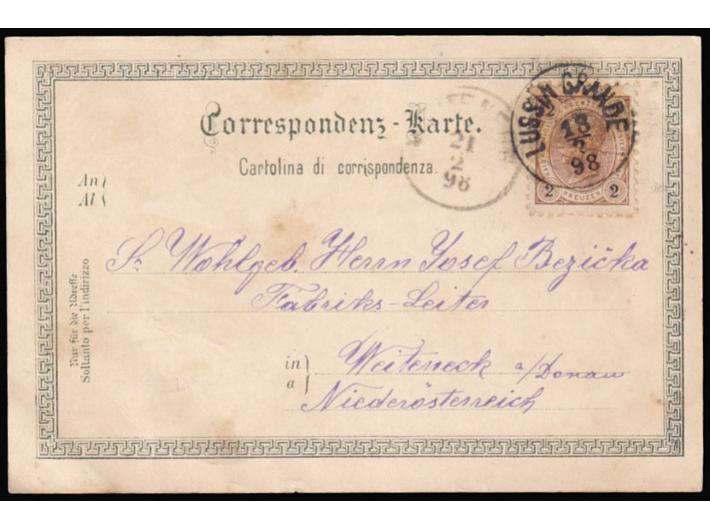 Correspondenz-Karte.
Cartolina di corrispondenza.
LUSSIN GRANDE
18
2
98
21
2
98
2 KREUZER 2
An
Al
Sr Wohlgeb. Herrn Josef Bezička
Fabriks-Leiter
in
a
Weiteneck a/Donau
Niederösterreich
Nur für die Adresse
Soltanto per l'indirizzo